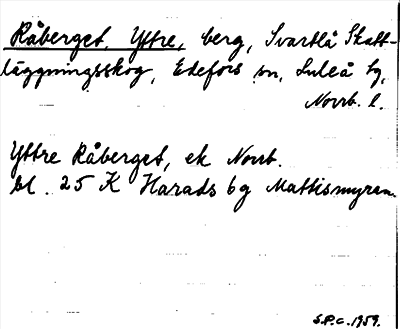 Råberget, Yttre, berg, Svartlå Skatt-
läggningsskog, Edefors sn, Luleå hg,
Norrb. l.
Yttre Råberget, ek Norrb.
bl. 25 K Harads bg Mattismyran.
S.P.C. 1959.